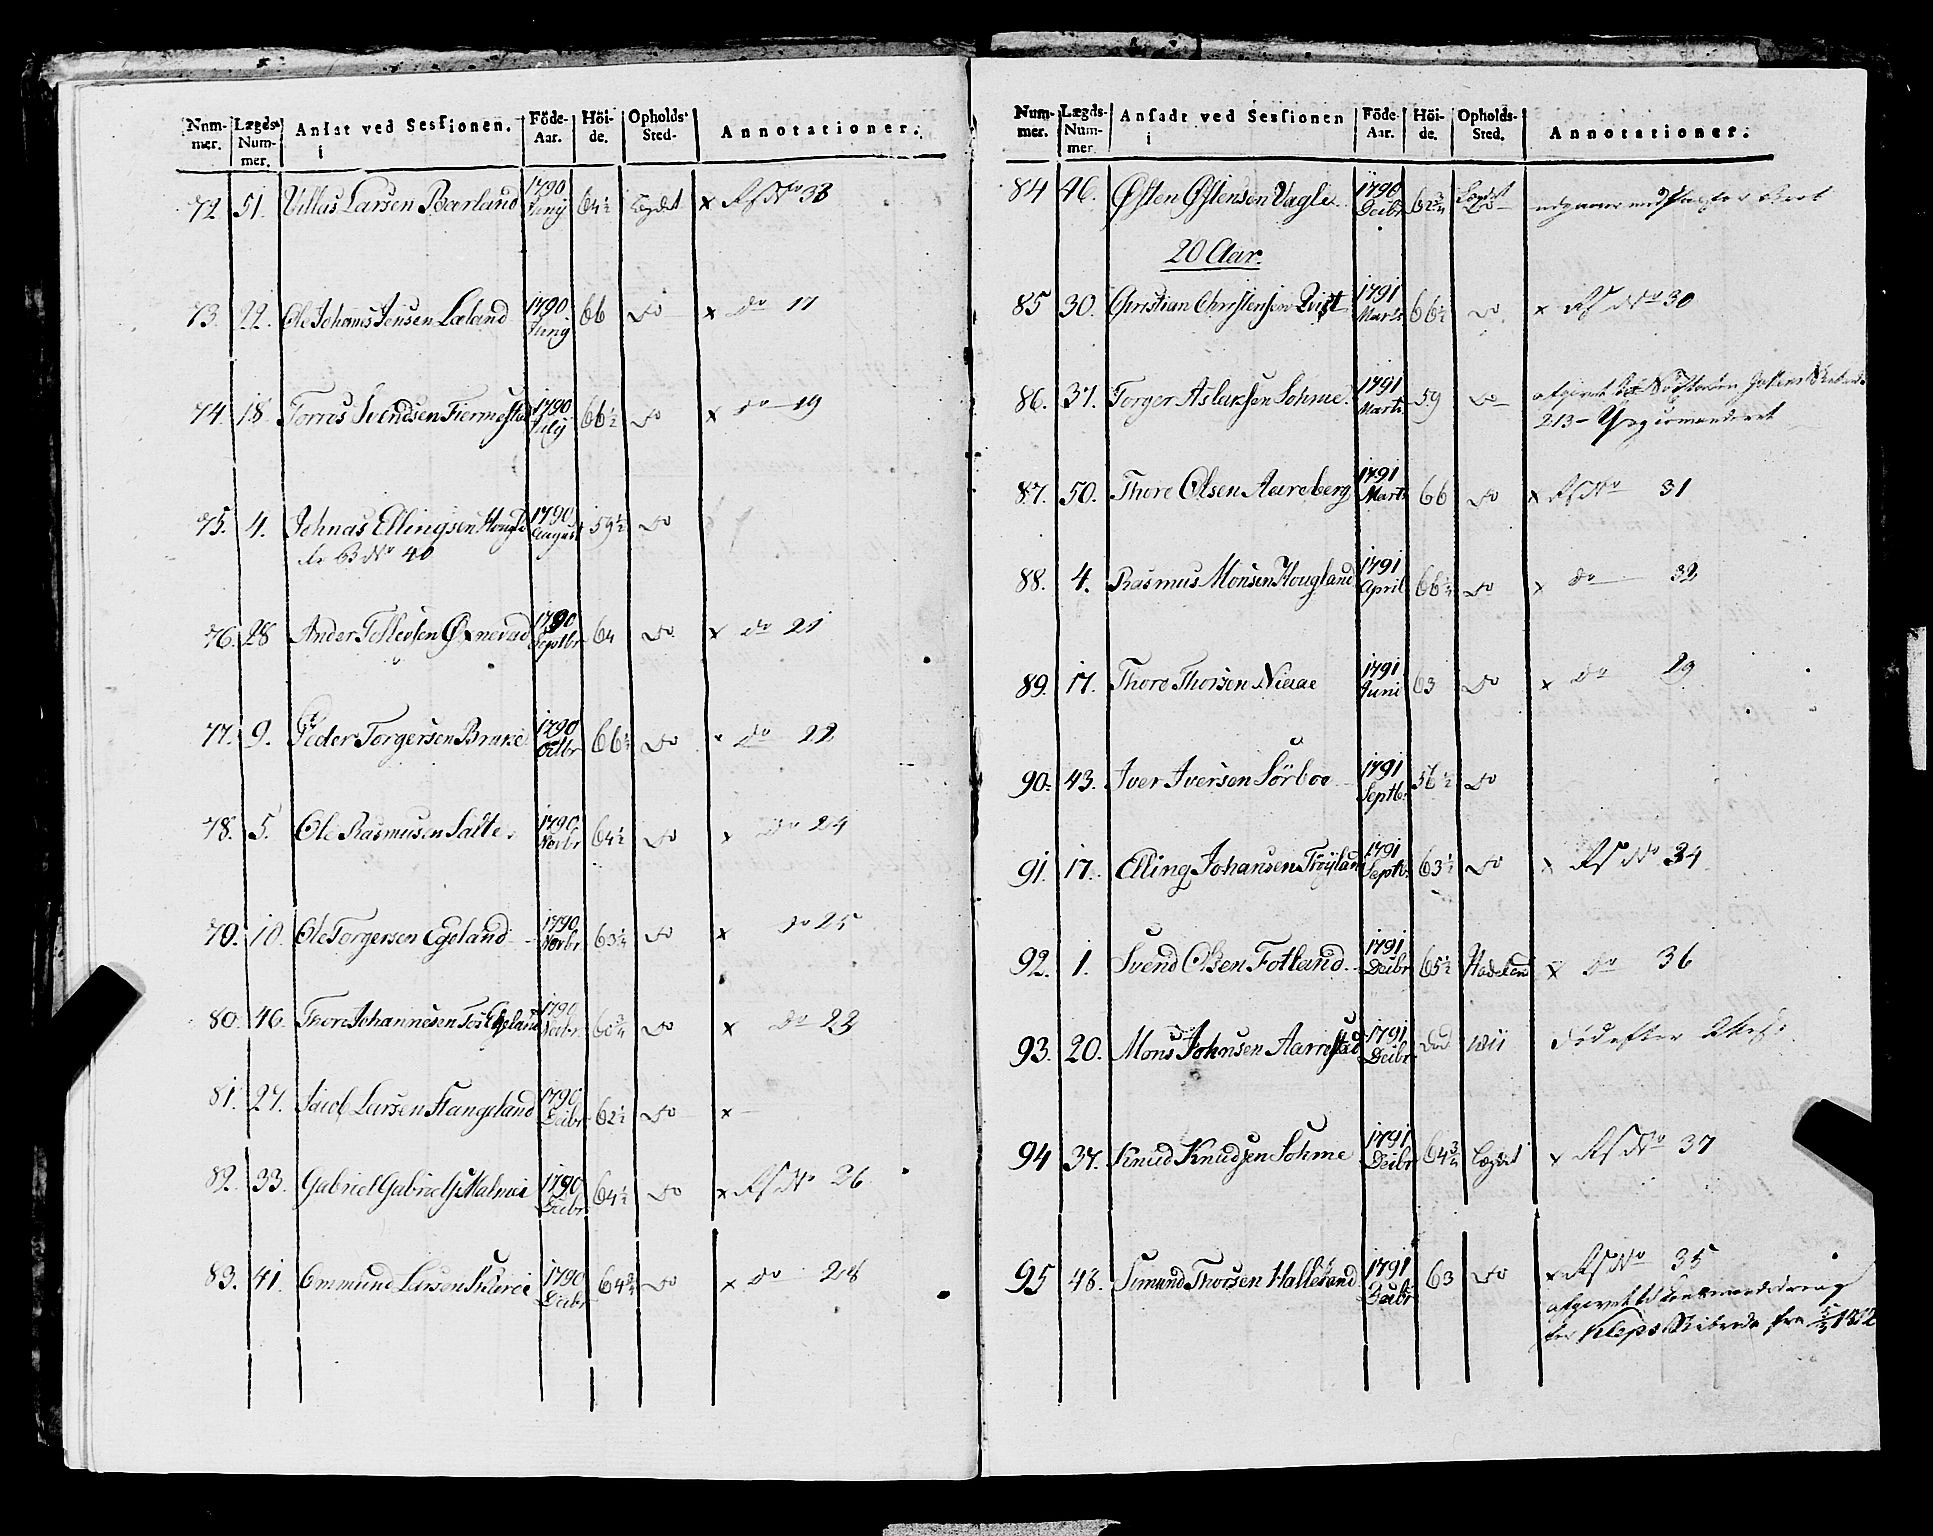 Num- Lægds- Ansat ved Sessionen. Föde- Höi- Opholds- Annotationer.
mer. Num- Aar. de. Sted.
mer.
72 51. Villas Larsen Bærland 1790 Junÿ 64½ Lægdet x RS No 33
73. 22. Ole Johannes Jensen Læland 1790 Junÿ 66 Do x do 17
74. 18. Torres Svendsen Tiermestad 1790 Julÿ 66½ Do x do 19
75. 4. Johnas Ellingsen Hougl 1790 August 59½ Do
B No 40
76. 28 Ander Tollevsen Øxnevad 1790 Septbr 64 Do x do 21
77. 9. Peder Torgersen Brune 1790 Octbr 66½ Do x do 22
78. 5. Ole Rasmusen Salte. 1790 Novbr 64½ Do x do 24
79. 10. Ole Torgersen Egeland 1790 Novbr 63¼ Do x do 25
80. 46. Thore Johannesen 1790 60¾ Do x do 23
81. 27. Larsen Stangeland 1790 Decbr 62½ Do x
82. 33. Gabriel Gabriels Malmei 1790 Decbr 64½ Do x RS No 26
83. 41. Ommund Larsen 1790 Decbr 64¾ Do x do 28
Num- Lægds- Ansadt ved Sessionen Föde- Höi- Opholds- Annotationer.
mer. Num- Aar. de. Sted.
mer.
84 46. Østen Østensen Vagle. 1790 Decbr 62¾ Lægdet
20 Aar.
85 30. Christian Christensen Qvist 1791 Marts 66½ Do x RS No 30
86. 37. Torger Aslaksen Sohme. 1791 Marts 59 Do afgivet
213
87. 50. Thore Olsen Aareberg 1791 Marts 66 Do x RS No 31
88. 4. Rasmus Monsen Hougland 1791 April 66½ Do x do 32
89. 17. Thore Thorsen Niaae 1791 Juni 63 Do x do 29
90. 43. Iver Iversen Sörboe 1791 Septbr 56½ Do
91. 17. Elling Johansen Tröÿland 1791 Septbr 63½ Do x RS No 34
92. 1. Svend Olsen Fotland 1791 Decbr 65½ x do 36
93. 20. Mons Johnsen Aarrestad 1791 Decbr Död efter
94 37. Knud Knudsen Sohme 1791 Decbr 64¾ Lægdet x RS No 37
95 48. Simund Thorsen 1791 Decbr 63 Do x RS No 35
afgivet til
for Kleps fra 1812